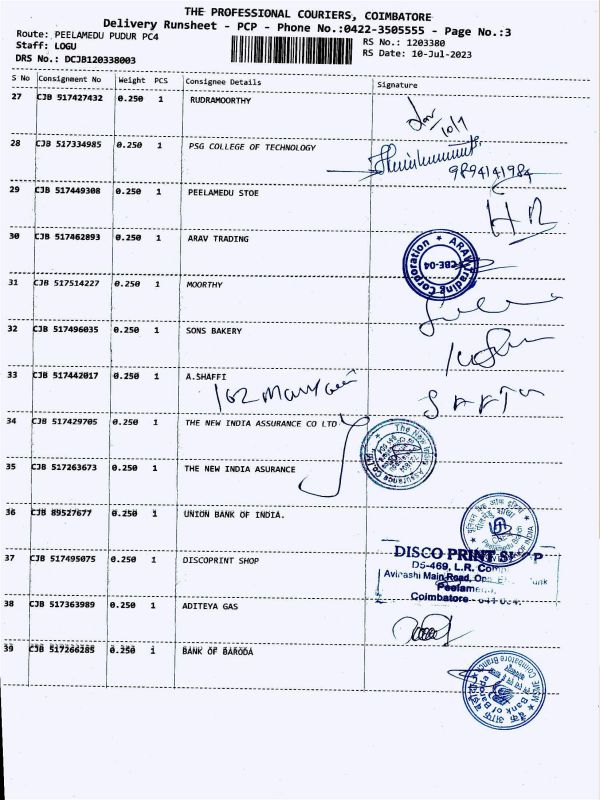 THE PROFESSIONAL COURIERS, COIMBATORE
Delivery Runsheet - PCP - Phone No.:0422-3505555 - Page No.:3
Route: PEELAMEDU PUDUR PC4
Staff: LOGU
DRS No.: DCJB120338003
RS No.: 1203380
RS Date: 10-Jul-2023
S No Consignment No Weight PCS Consignee Details Signature
27 CJB 517427432 0.250 1 RUDRAMOORTHY
10/7
28 CJB 517334985 0.250 1 PSG COLLEGE OF TECHNOLOGY
9894141984
29 CJB 517449308 0.250 1 PEELAMEDU STOE
30 CJB 517462893 0.250 1 ARAV TRADING
ARAV Trading Corporation
CBE-04
31 CJB 517514227 0.250 1 MOORTHY
32 CJB 517496035 0.250 1 SONS BAKERY
33 CJB 517442017 0.250 1 A.SHAFFI
34 CJB 517429705 0.250 1 THE NEW INDIA ASSURANCE CO LTD
The New India Assurance Co.Ltd.
35 CJB 517263673 0.250 1 THE NEW INDIA ASURANCE
36 CJB 89527677 0.250 1 UNION BANK OF INDIA.
37 CJB 517495075 0.250 1 DISCOPRINT SHOP
DISCO PRINT SHOP
D5-469, L.R.
Avinashi Main Road,
Peelamedu,
Coimbatore
38 CJB 517363989 0.250 1 ADITEYA GAS
39 CJB 517266285 0.250 1 BANK OF BARODA
बैंक ऑफ़ बड़ौदा
Bank of Baroda